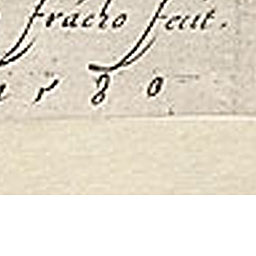 fracho fecit.
1 5 8 0